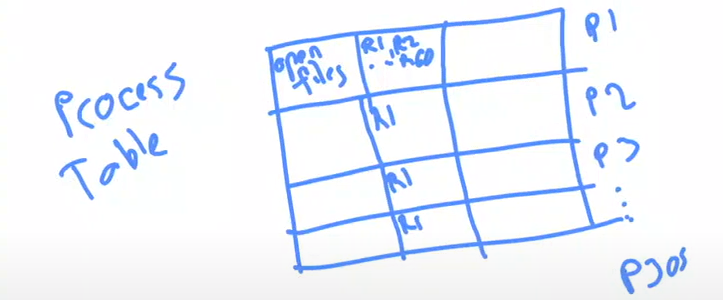 Process
Table
open
files
R1, R2
... R60
R1
R1
R1
P1
P2
P3